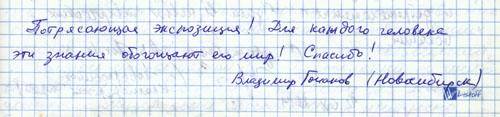 Потрясающая экспозиция! Для каждого человека
эти знания обогощают его мир! Спасибо!
Владимир (Новосибирск)